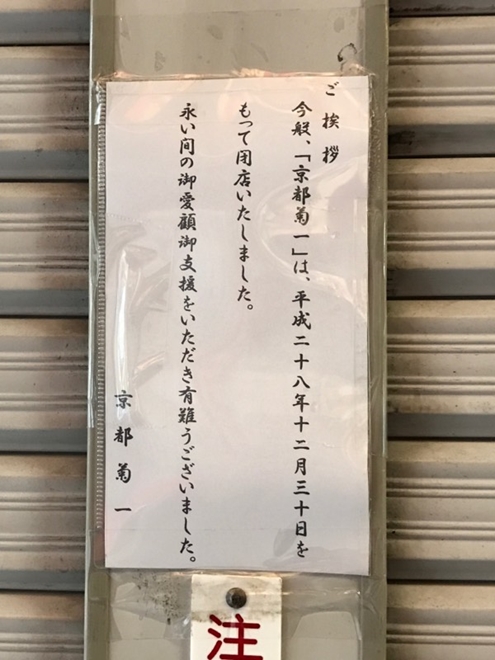 ご挨拶
今般、「京都菊一」は、平成二十八年十二月三十日を
もって閉店いたしました。
永い間の御愛顧御支援をいただき有難うございました。
京都菊一
注